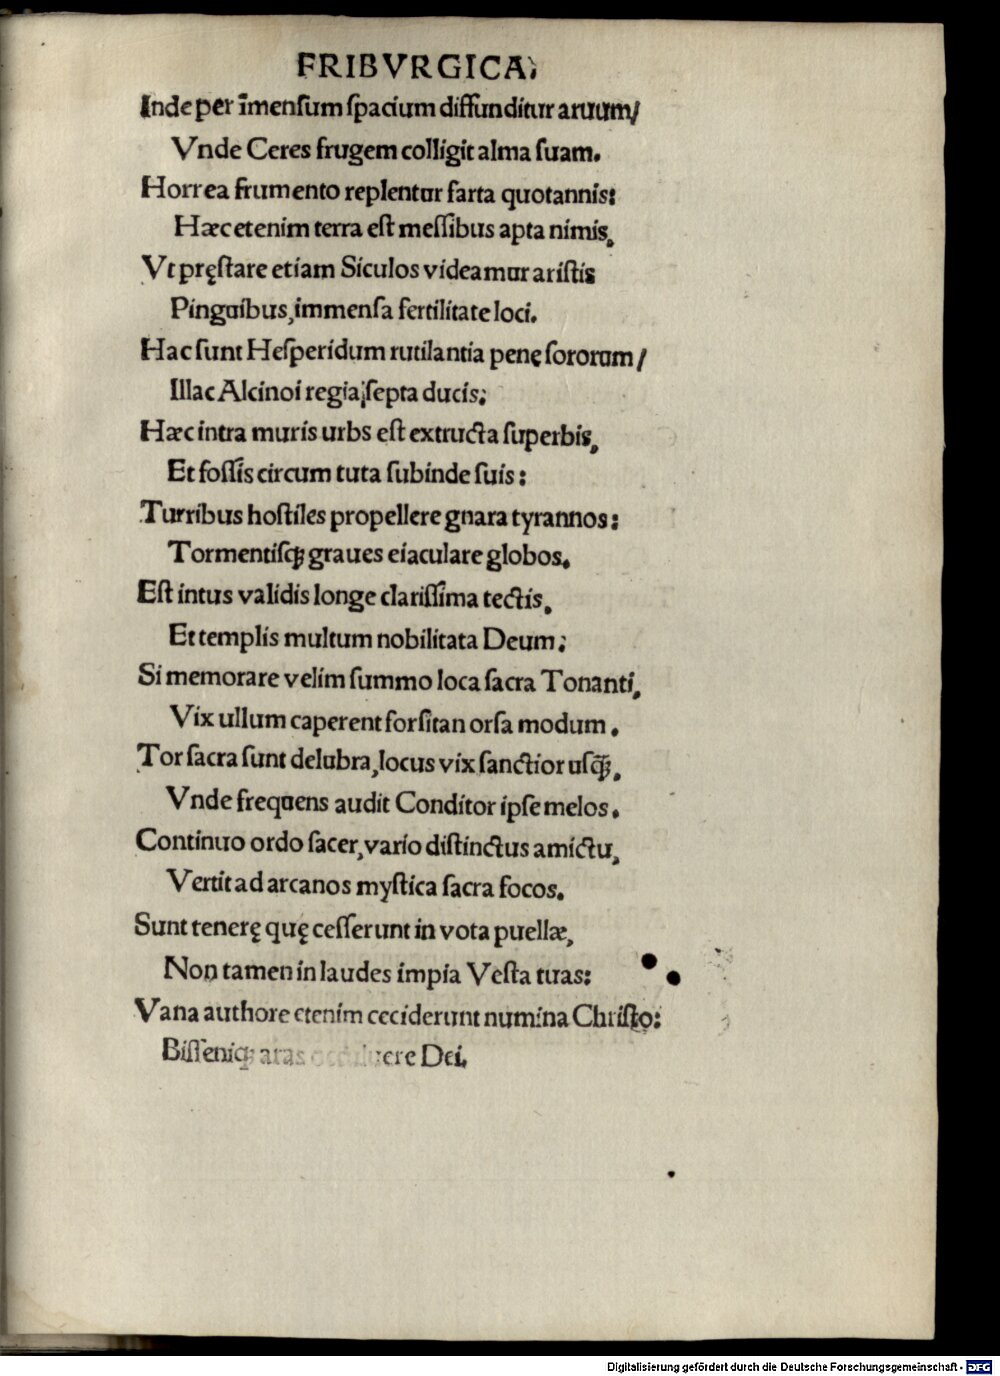 FRIBVRGICA;
Inde per īmensum spacium diffunditur aruum/
Vnde Ceres frugem colligit alma suam.
Horrea frumento replentur farta quotannis:
Hæc etenim terra est messibus apta nimis,
Vt pręstare etiam Siculos videamur aristis
Pinguibus, immensa fertilitate loci.
Hac sunt Hesperidum rutilantia penę sororum/
Illac Alcinoi regia, septa ducis;
Hæc intra muris urbs est extructa superbis,
Et fossis circum tuta subinde suis:
Turribus hostiles propellere gnara tyrannos:
Tormentisqꝫ graues eiaculare globos.
Est intus validis longe clarissima tectis,
Et templis multum nobilitata Deum;
Si memorare velim summo loca sacra Tonanti,
Vix ullum caperent forsitan orsa modum.
Tor sacra sunt delubra, locus vix sanctior usqꝫ,
Vnde frequens audit Conditor ipse melos.
Continuo ordo sacer, vario distinctus amictu,
Vertit ad arcanos mystica sacra focos.
Sunt tenerę quę cesserunt in vota puellæ,
Non tamen in laudes impia Vesta tuas:
Vana authore etenim ceciderunt numina Christo:
Bisseniqꝫ aras Dei.
Digitalisierung gefördert durch die Deutsche Forschungsgemeinschaft - DFG